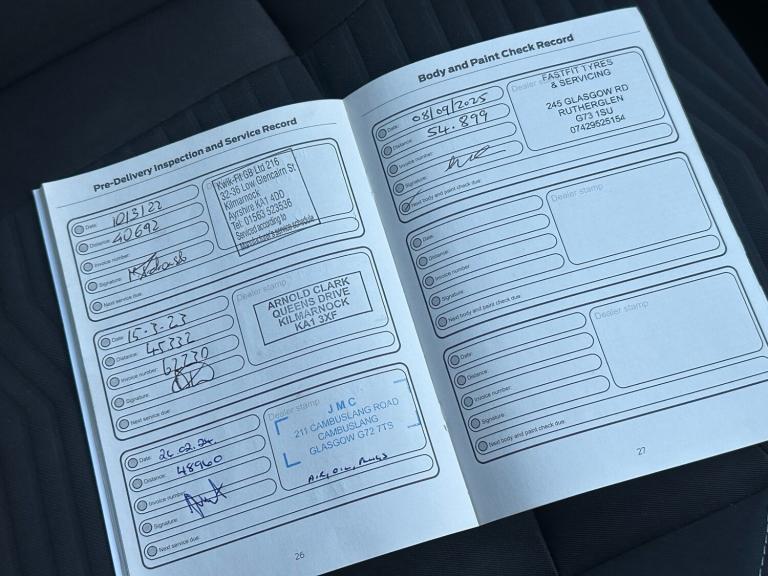 Pre-Delivery Inspection and Service Record
Date: 10/3/22
Distance: 40692
Invoice number:
Signature:
Next service due:
Kwik-Fit GB Ltd 216
32-36 Low Glencairn St
Kilmarnock
Ayrshire KA1 4DD
Tel: 01563 523536
Serviced according to
Manufacturer's service schedule
Date: 15-3-23
Distance: 45332
Invoice number: 62730
Signature:
Next service due:
Dealer stamp
ARNOLD CLARK
QUEENS DRIVE
KILMARNOCK
KA1 3XF
Date: 26.02.24
Distance: 48960
Invoice number:
Signature:
Next service due:
Dealer stamp
JMC
211 CAMBUSLANG ROAD
CAMBUSLANG
GLASGOW G72 7TS
AIR, OIL, PLUGS
26
Body and Paint Check Record
Date: 08/09/2025
Distance: 54.899
Invoice number:
Signature:
Next body and paint check due:
Dealer stamp
FASTFIT TYRES
& SERVICING
245 GLASGOW RD
RUTHERGLEN
G73 1SU
07429525154
Date:
Distance:
Invoice number:
Signature:
Next body and paint check due:
Dealer stamp
Date:
Distance:
Invoice number:
Signature:
Next body and paint check due:
Dealer stamp
27